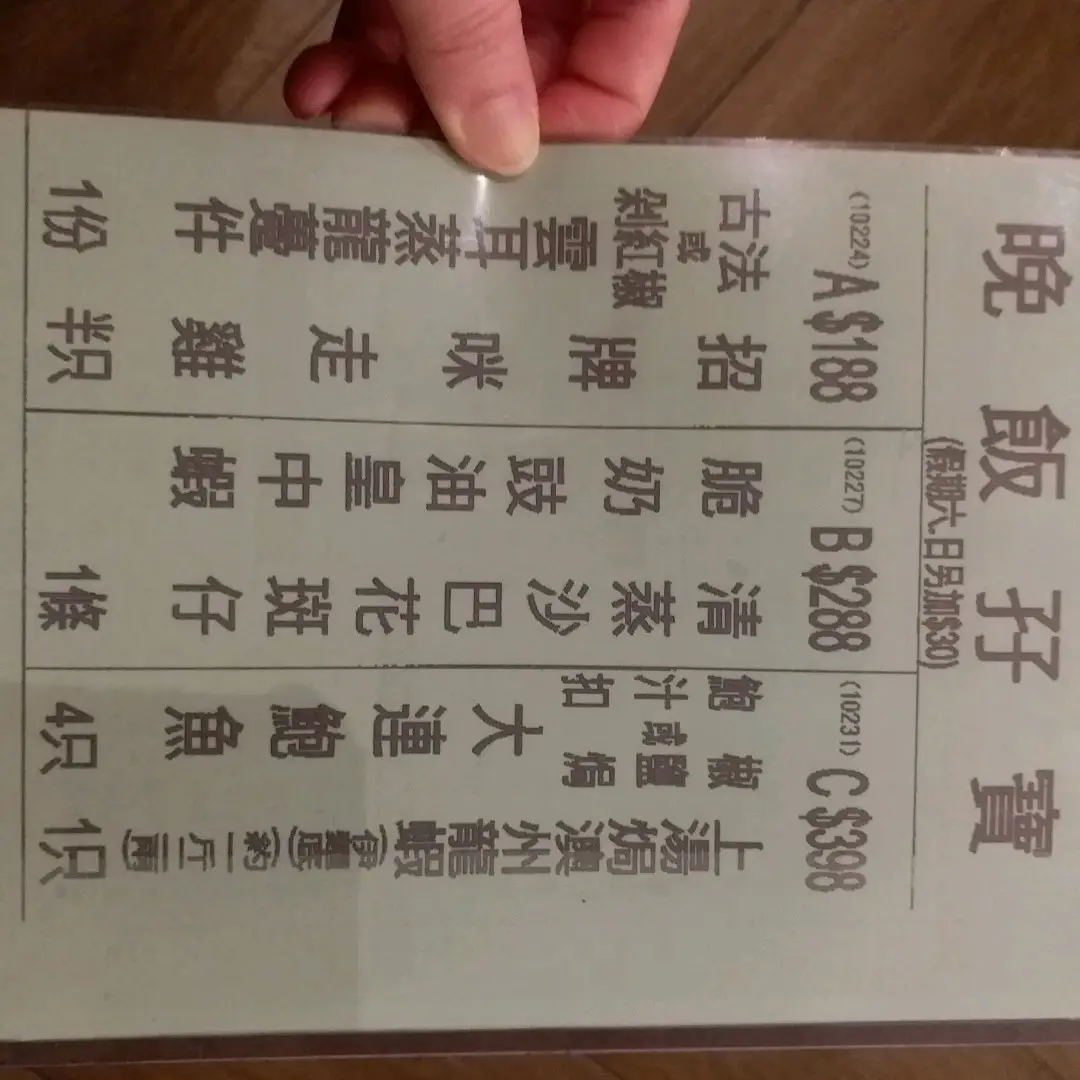 晚飯孖寶
(假期六.日另加$30)
(10224) A $188
古法或剁紅椒雲耳蒸龍躉件 1份
招牌咪走雞 半只
(10227) B $288
脆奶豉油皇中蝦
清蒸沙巴花斑仔 1條
(10231) C $398
鮑汁扣或椒鹽焗大連鮑魚 4只
上湯焗澳州龍蝦(伊麵底)(約一斤二両) 1只